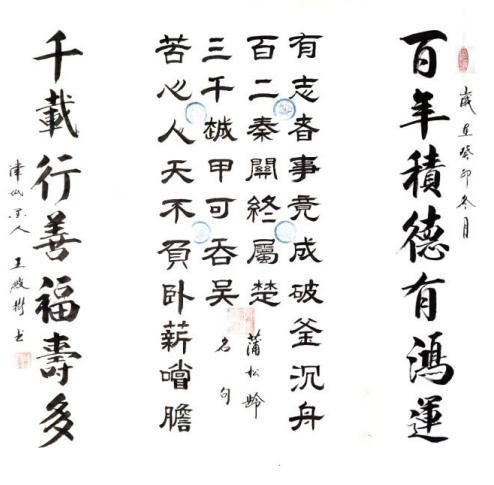 歲在癸卯冬月
百年積德有鴻運
有志者事竟成破釜沉舟
百二秦關終屬楚
三千越甲可吞吴
苦心人天不負卧薪嚐膽
蒲松齡
名句
千載行善福壽多
津沽人 王书